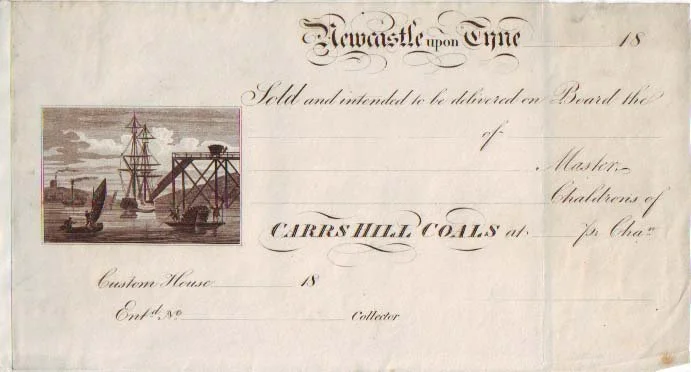 Newcastle upon Tyne 18
Sold and intended to be delivered on Board the
of
Master
Chaldrons of
CARRS HILL COALS at pr Chan
Custom House 18
Entd. No Collector